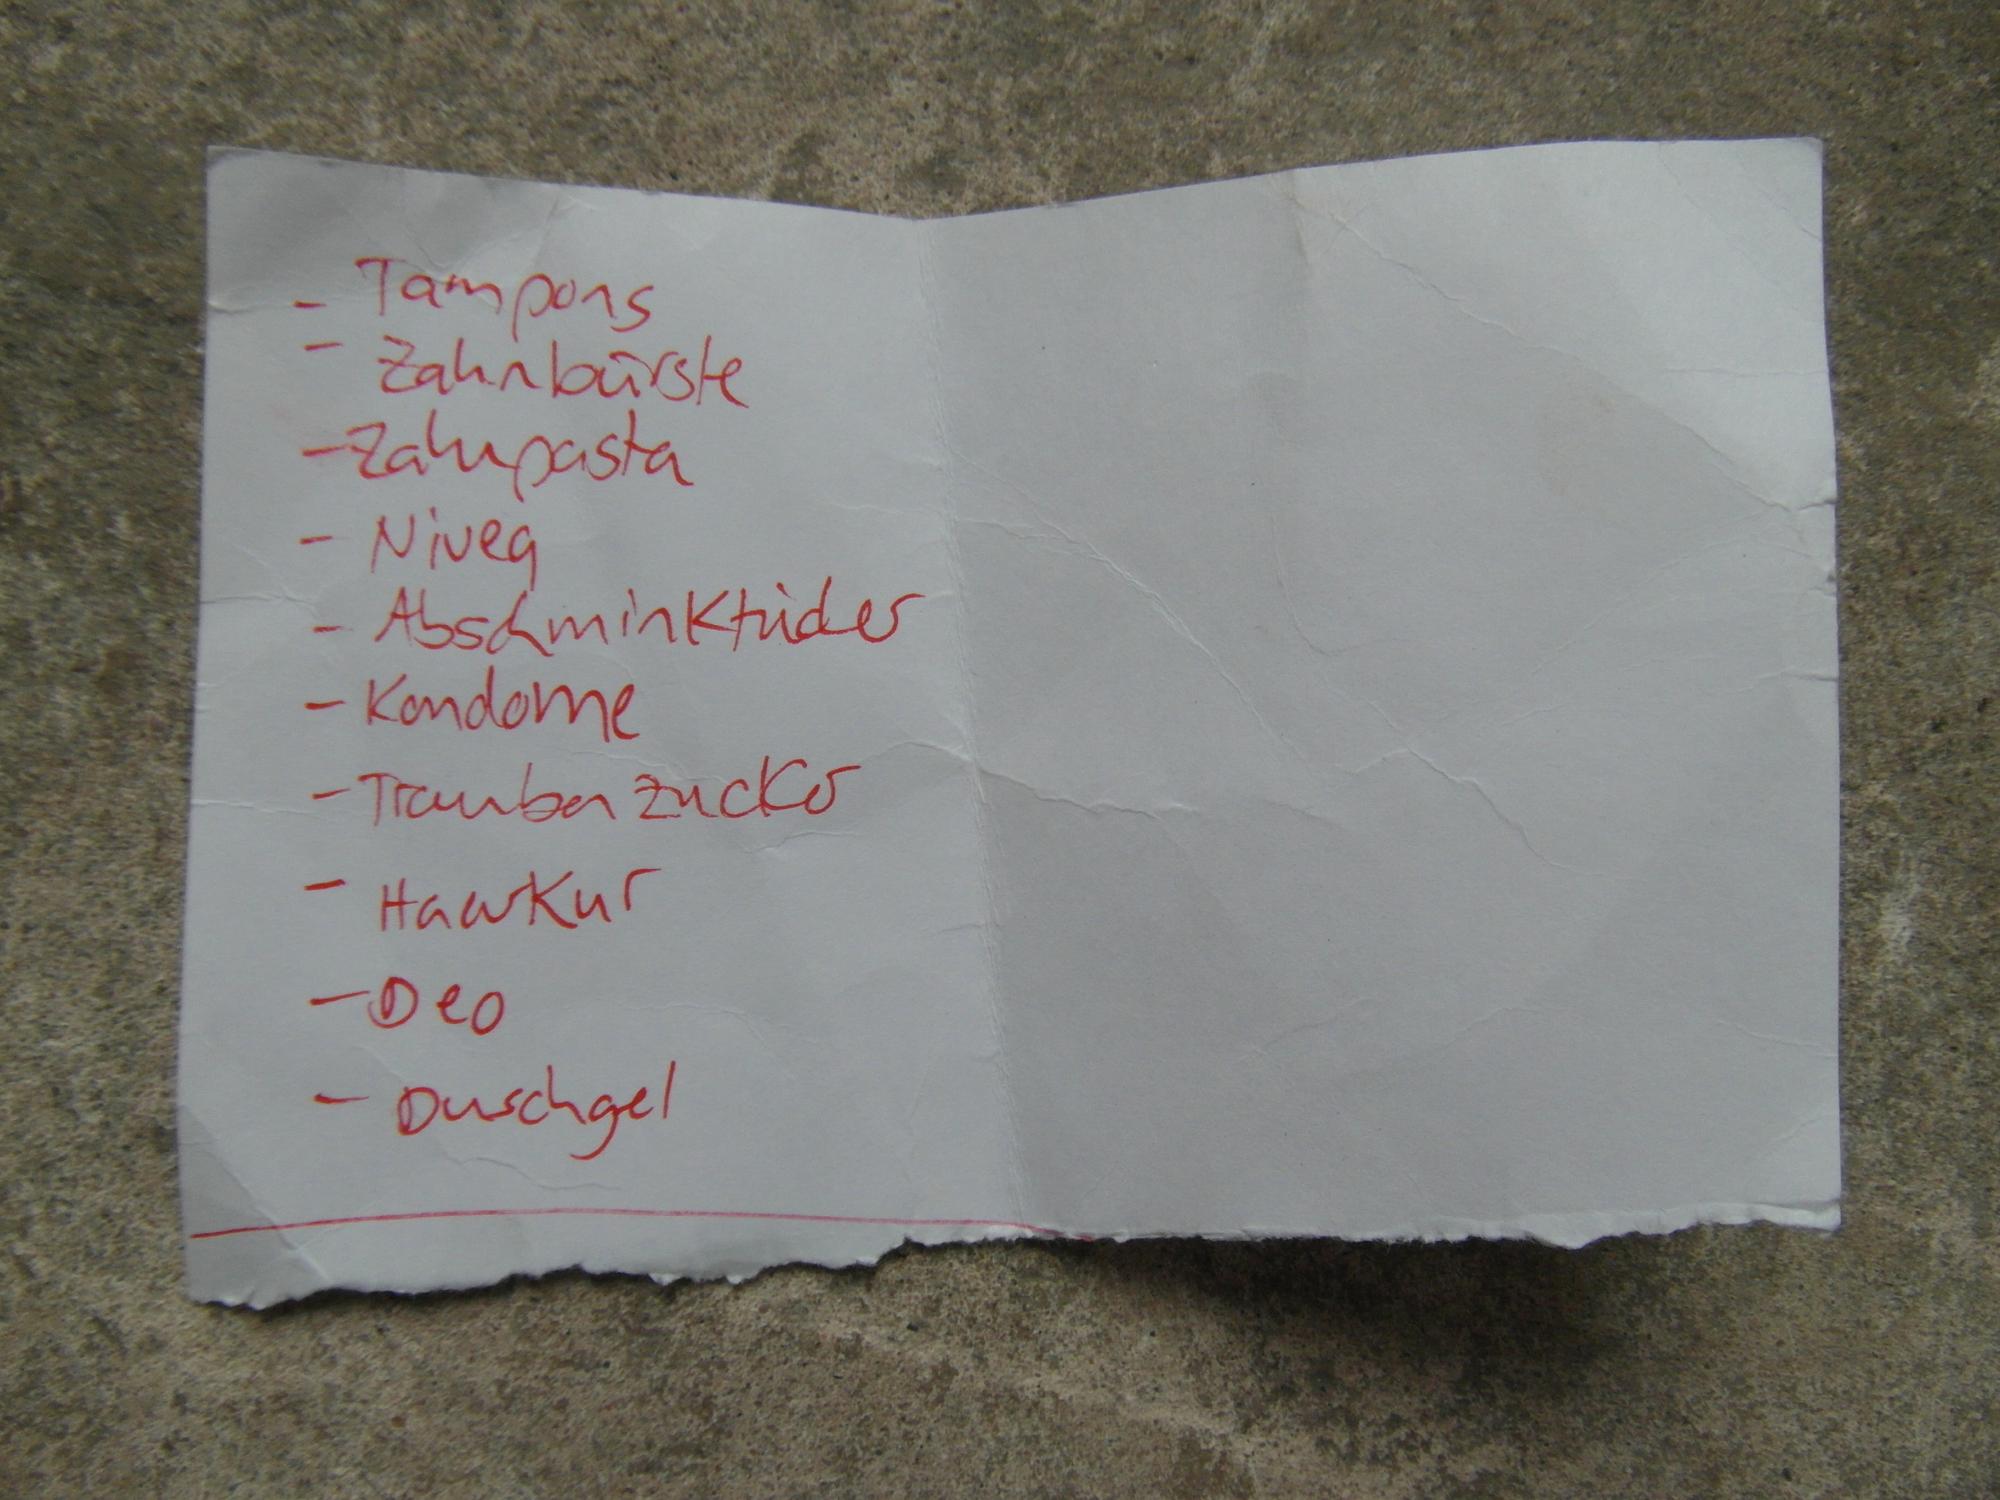 - Tampons
- Zahnbürste
- Zahnpasta
- Nivea
- Abschminktücher
- Kondome
- Traubenzucker
- Haarkur
- Deo
- Duschgel